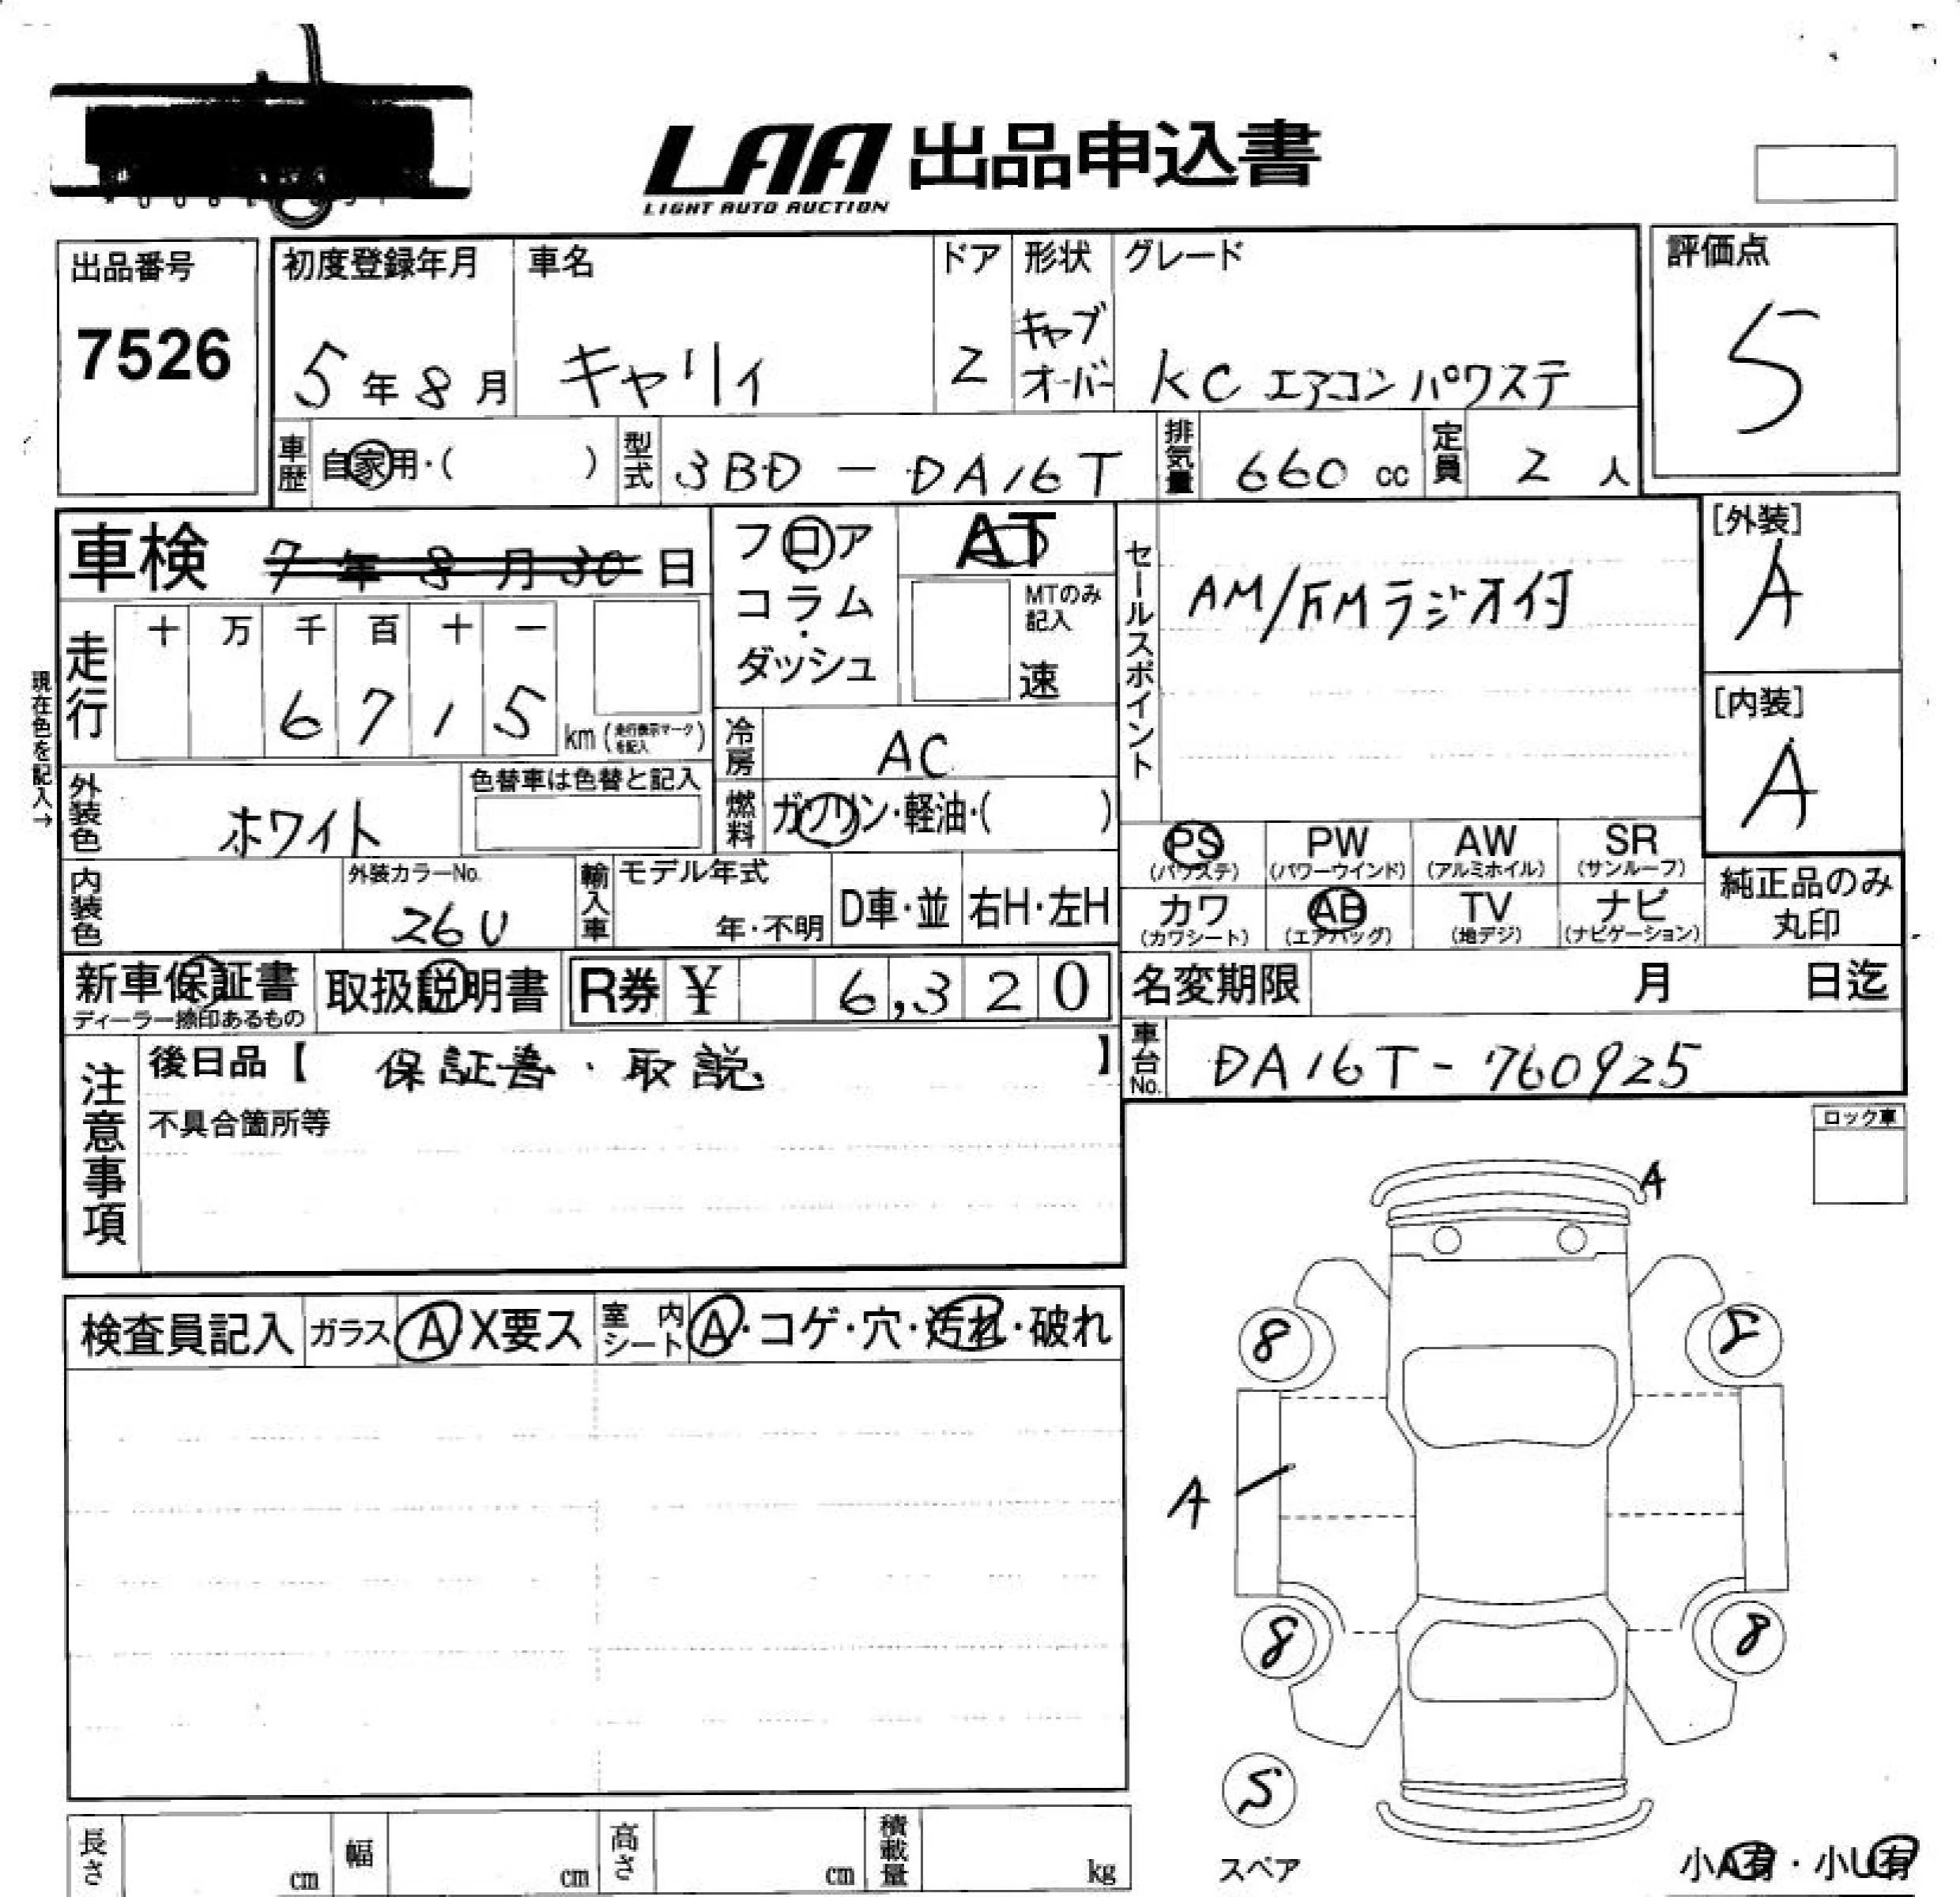 LAA 出品申込書
LIGHT AUTO AUCTION
出品番号
7526
初度登録年月
5年8月
車名
キャリイ
ドア
2
形状
キャブ
オーバー
グレード
KC エアコン パワステ
評価点
5
車歴
自家用・( )
型式
3BD - DA16T
排気量
660 cc
定員
2 人
車検 7年8月30日
フロア
コラム
・
ダッシュ
AT
MTのみ
記入
速
セールスポイント
AM/FMラジオ付
[外装]
A
[内装]
A
現在色を記入→
走行
十 万 千 百 十 一
6 7 1 5
km (走行表示マークを記入)
冷房
AC
燃料
ガソリン・軽油・( )
外装色
ホワイト
色替車は色替と記入
内装色
外装カラーNo.
26U
輸入車
モデル年式
年・不明
D車・並
右H・左H
PS
(パワステ)
PW
(パワーウインド)
AW
(アルミホイル)
SR
(サンルーフ)
カワ
(カワシート)
AB
(エアバッグ)
TV
(地デジ)
ナビ
(ナビゲーション)
純正品のみ
丸印
新車保証書
ディーラー捺印あるもの
取扱説明書
R券 ¥ 6,320
名変期限 月 日迄
車台No.
DA16T-760925
注意事項
後日品【 保証書・取説 】
不具合箇所等
ロック車
A
検査員記入
ガラス
A X要ス
室内
シート
A・コゲ・穴・汚れ・破れ
8
5
A
8
8
5
スペア
小A有・小U有
長さ
cm
幅
cm
高さ
cm
積載量
kg